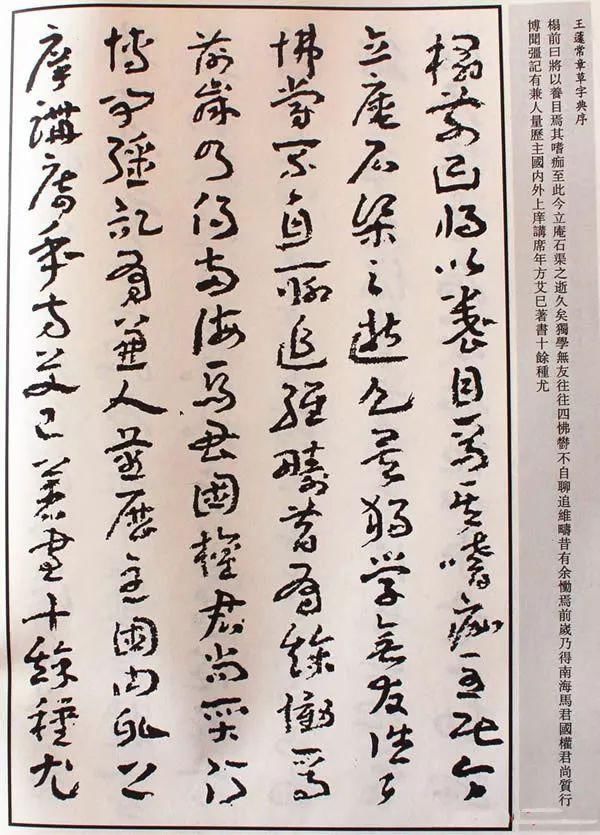 王蘧常章草字典序
榻前曰將以養目焉其嗜痂至此今立庵石渠之逝久矣獨學無友往往四怫鬱不自聊追維疇昔有余慟焉前嵗乃得南海馬君國權君尚質行
博聞彊記有兼人量歷主國内外上庠講席年方艾巳著書十餘種尤
榻前曰將以養目焉其嗜痂至此今
立庵石渠之逝久矣獨學無友往〻
怫鬱不自聊追維疇昔有餘慟焉
前嵗乃得南海馬君國權君尚質行
博聞彊記有兼人量歷主國内外上
庠講席年方艾已著書十餘種尤